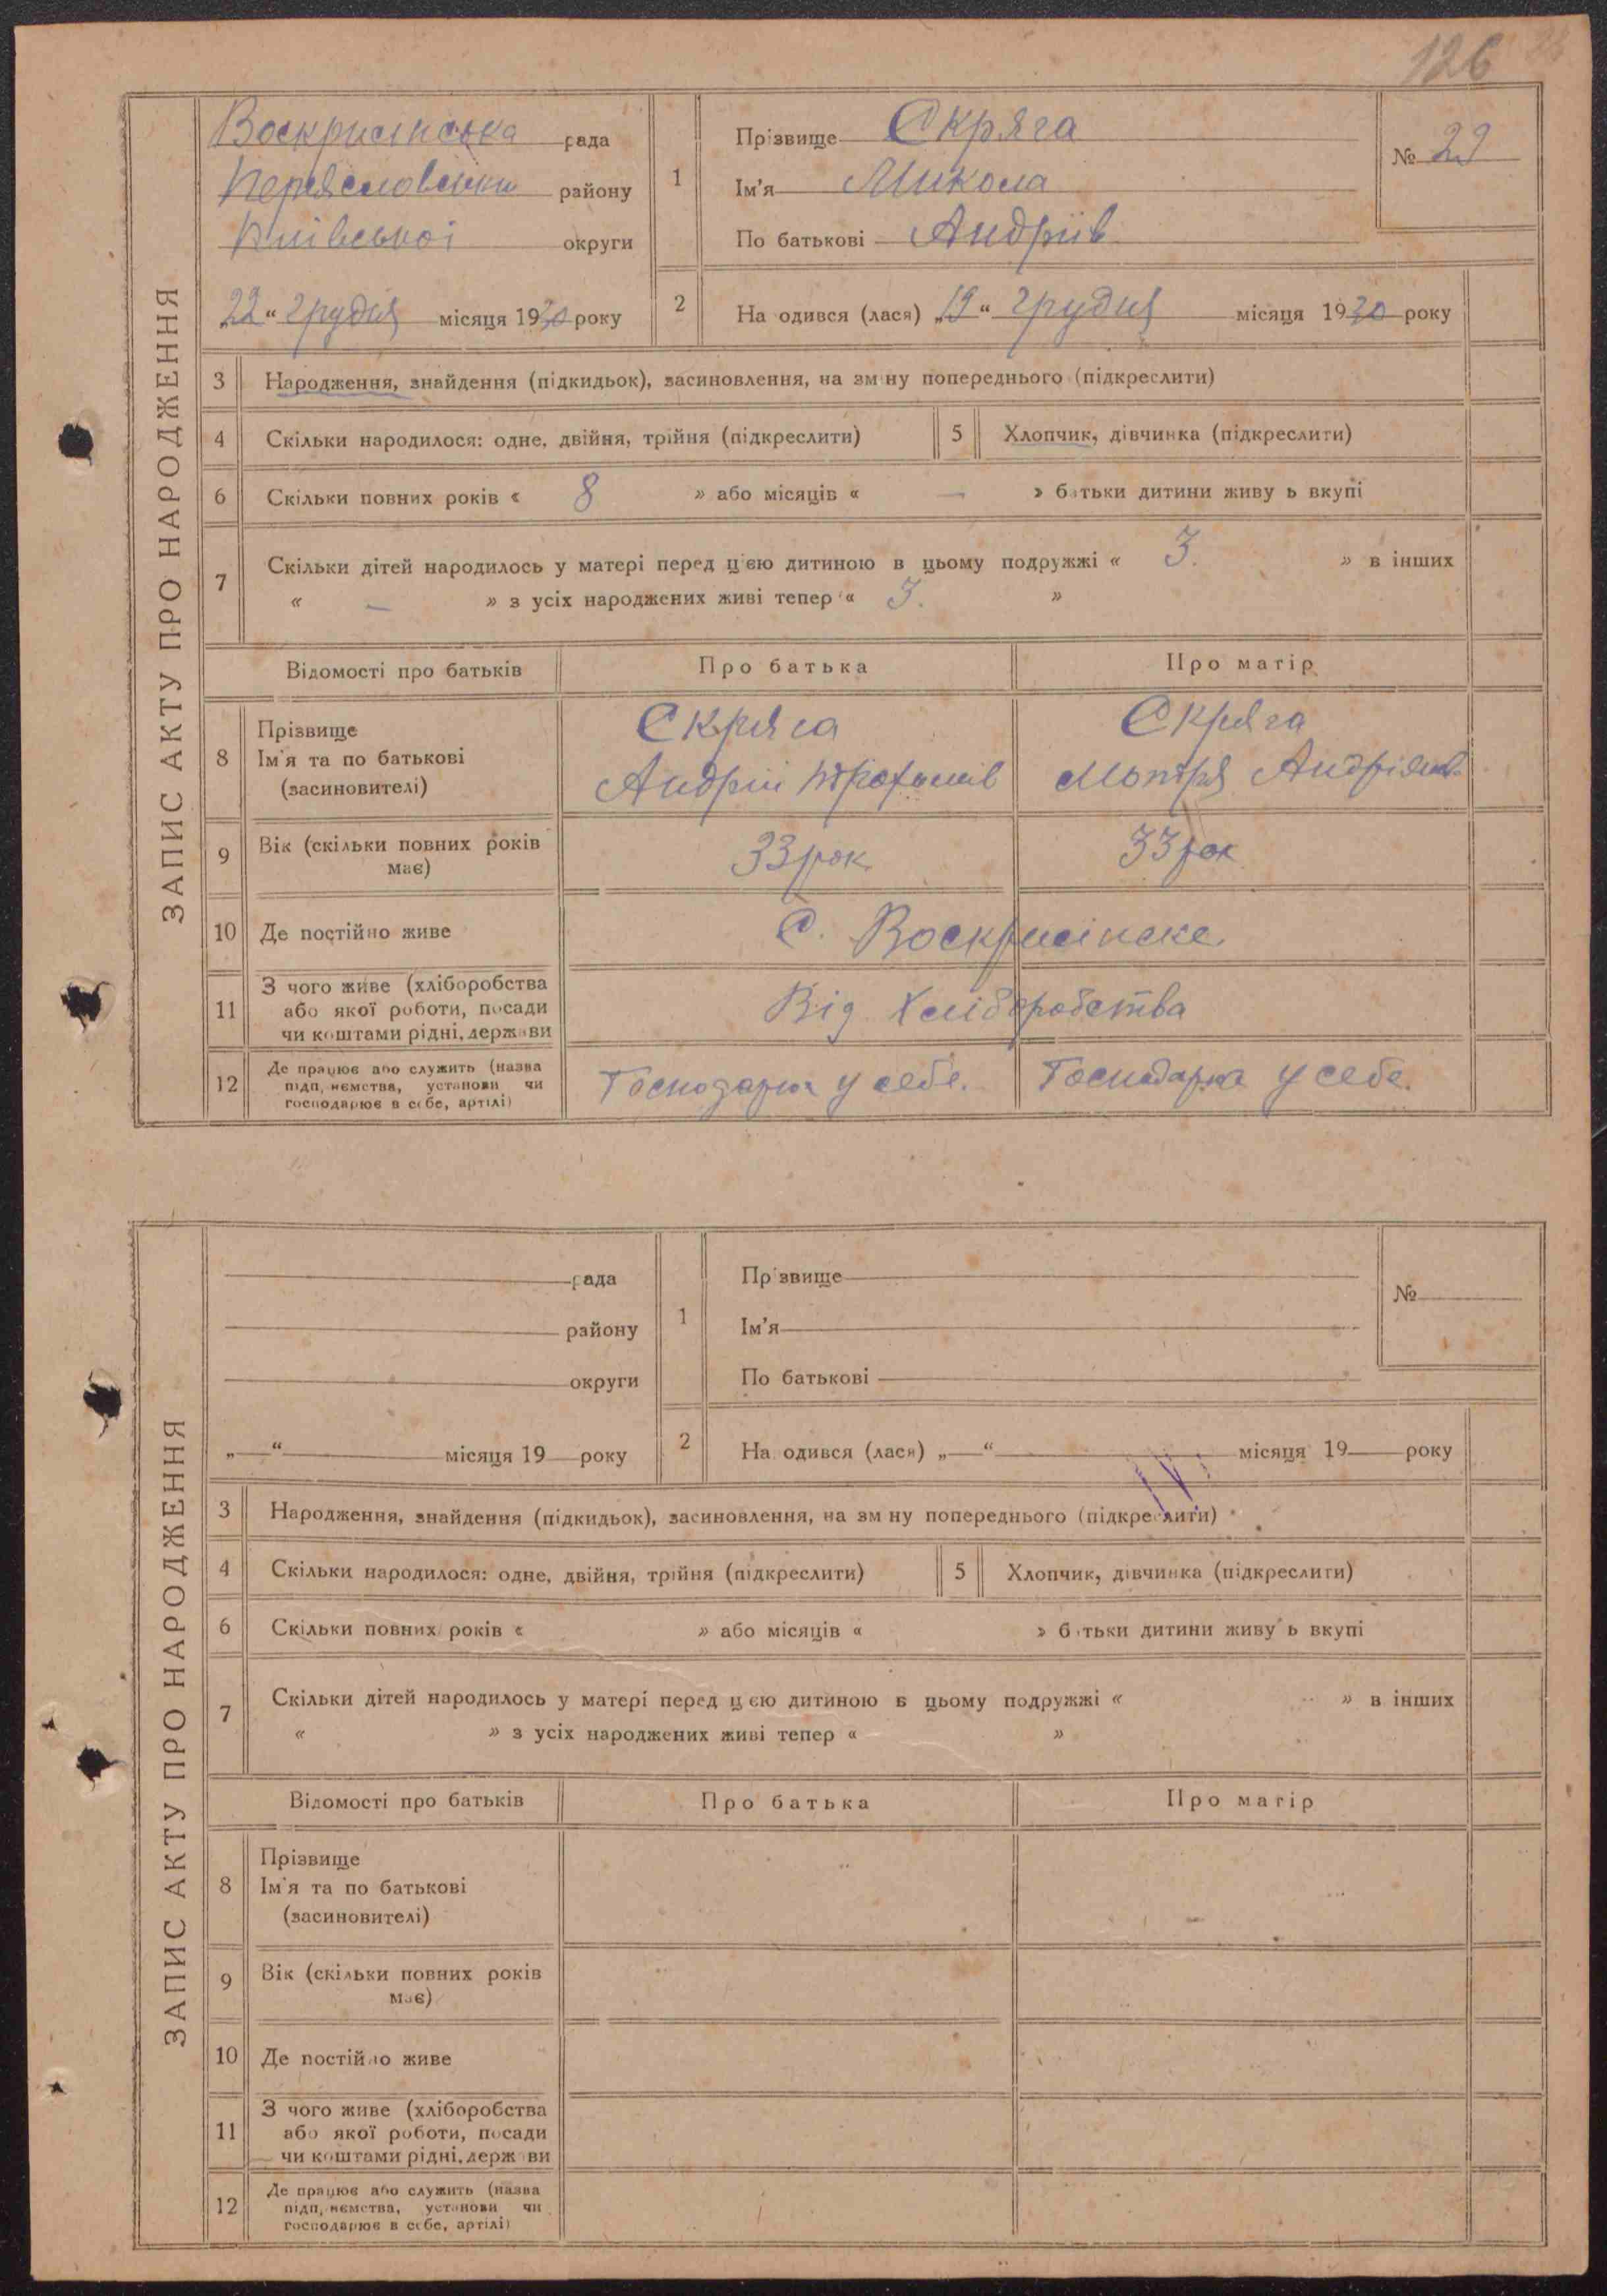 126
ЗАПИС АКТУ ПРО НАРОДЖЕННЯ
Воскрисінська рада
району
Київської округи
„22“ грудня місяця 1930 року
1
Прізвище Скряга
Ім'я Микола
По батькові Андріїв
№ 29
2
На одився (лася) „19“ грудня місяця 1930 року
3 Народження, знайдення (підкидьок), засиновлення, на зм ну попереднього (підкреслити)
4 Скільки народилося: одне, двійня, трійня (підкреслити)
5 Хлопчик, дівчинка (підкреслити)
6 Скільки повних років « 8 » або місяців « — » б тьки дитини живу ь вкупі
7 Скільки дітей народилось у матері перед цією дитиною в цьому подружжі « 3. » в інших
« — » з усіх народжених живі тепер « 3. »
Відомості про батьків Про батька Про матір
8 Прізвище
Ім'я та по батькові
(засиновителі)
Скряга
Андрій Трохимів
Скряга
Мотря
9 Вік (скільки повних років
має)
33 рок
33 рок
10 Де постійно живе С. Воскрисінске
11 З чого живе (хліборобства
або якої роботи, посади
чи коштами рідні, держави
Від Хліборобства
12 Де працює або служить (назва
підп, немства, установи чи
господарює в себе, артілі)
у себе.
у себе.
ЗАПИС АКТУ ПРО НАРОДЖЕННЯ
рада
району
округи
„ “ місяця 19 року
1
Пр звище
Ім'я
По батькові
№
2
На одився (лася) „ “ місяця 19 року
3 Народження, знайдення (підкидьок), засиновлення, на зм ну попереднього (підкреслити)
4 Скільки народилося: одне, двійня, трійня (підкреслити)
5 Хлопчик, дівчинка (підкреслити)
6 Скільки повних років « » або місяців « » б тьки дитини живу ь вкупі
7 Скільки дітей народилось у матері перед ц єю дитиною в цьому подружжі « » в інших
« » з усіх народжених живі тепер « »
Відомості про батьків Про батька Про матір
8 Прізвище
Ім'я та по батькові
(засиновителі)
9 Вік (скільки повних років
має)
10 Де постійно живе
11 З чого живе (хліборобства
або якої роботи, посади
чи коштами рідні, держ ви
12 Де працює або служить (назва
підп, немства, установи чи
господарює в себе, артілі)